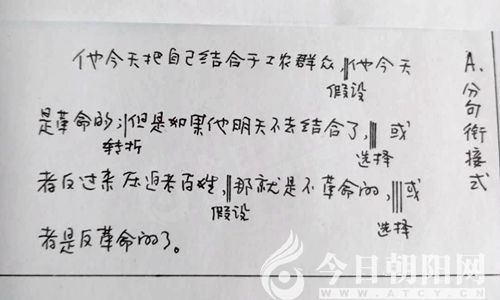 他今天把自己结合于工农群众,‖他今天
假设
是革命的;|但是如果他明天不去结合了,⦀或
转折 选择
者反过来压迫老百姓,‖那就是不革命的,⦀或
假设 选择
者是反革命的了。
A.分句衔接式
今日朝阳网
WWW.ATCY.CN